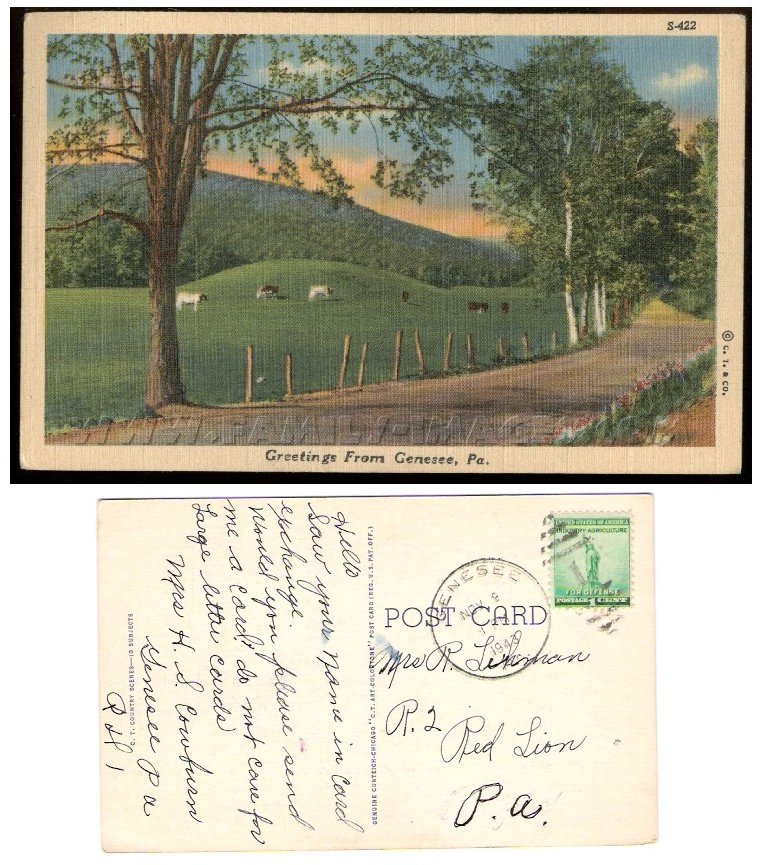 S-422
© C. T. & CO.
WWW.FAMILY-IMAGES
Greetings From Genesee, Pa.
Hello
Saw your name in card
exchange.
Would you please send
me a card; do not care for
Large letter cards
Mrs H. S. Cowburn
Genesee Pa
"C. T. COUNTRY SCENES—10 SUBJECTS
GENUINE CURTEICH-CHICAGO "C.T. ART-COLORTONE" POST CARD (REG. U.S. PAT. OFF.)
GENESEE
NOV 9
1943
POST CARD
UNITED STATES OF AMERICA
INDUSTRY-AGRICULTURE
FOR DEFENSE
POSTAGE 1 CENT
Mrs R. Linman
R. 2
Red Lion
P.a.